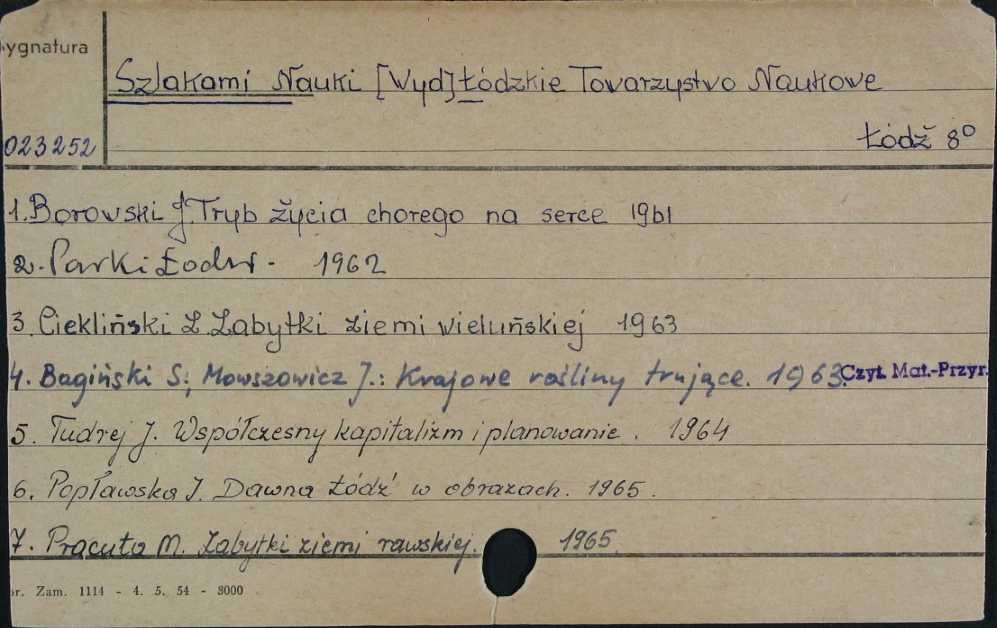 ygnatura
Szlakami Nauki [Wyd] Łódzkie Towarzystwo Naukowe
023252
Łódź 8°
1. Borowski J. Tryb życia chorego na serce 1961
2. Parki Łodzi - 1962
3. Ciekliński Z. Zabytki ziemi wieluńskiej 1963
4. Bagiński S., Mowszowicz J.: Krajowe rośliny trujące. 1963. Czyt. Mat.-Przyr.
5. Tudrej J. Współczesny kapitalizm i planowanie. 1964
6. Popławska J. Dawna Łódź w obrazach. 1965.
7. Pracuta M. Zabytki ziemi rawskiej. 1965.
r. Zam. 1114 - 4. 5. 54 - 3000